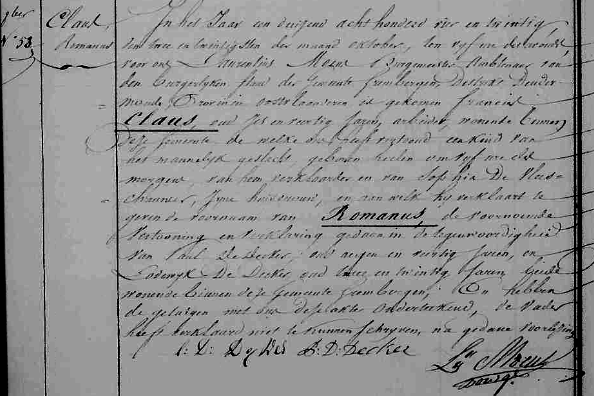 Claus,
Romanus
N° 53
In het Jaar een duizend acht honderd vier en twintig
den twee en twintigsten der maand oktober, ten vyf ure des avonds
voor ons Laurentius Moens Burgemeester Ambtenaar van
den burgerlyken staat der Gemeente Grembergen, District Dender
monde, Provincie oostvlaenderen is gekomen Francies
Claus, oud en veertig Jaren, arbeider, wonende binnen
deze gemeente, de welke ons heeft vertoond een kind van
het mannelyk geslacht, geboren heden om vyf ure des
morgens, van hem verklaarder en van Sophia De
Zyne huisvrouw, en aan welk hy verklaart te
geven de voornaam van Romanus, de voornoemde
vertooning en verklaring gedaen in de tegenwoordigheid
van Paul De Decker, oud negen en veertig Jaren, en
Lodewyk De Decker, oud twee en twintig Jaren, beide
wonende binnen deze Gemeente Grembergen; En hebben
de getuigen met ons deze akte onderteekend, de Vader
heeft verklaard niet te kunnen schryven, na gedane voorlezing
P: D: Decker
Moens